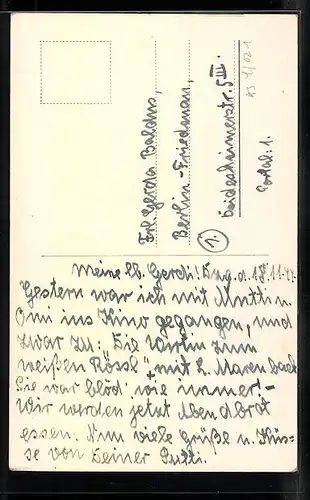 Frl. Gerda Baldus,
Berlin-Friedenau,
① Laubenheimerstr. 5 III.
Portal: 1.
Meine lb. Gerdi! d. 17.11.
Gestern war ich mit Mutti u.
Omi ins Kino gegangen, und
zwar zu: Die Wirtin zum
weißen Rössl" mit L. Maren bach
Sie war blöd wie immer.-
Wir werden jetzt Abendbrot
essen. Nun viele Grüße u. Küs-
se von Deiner Putti.